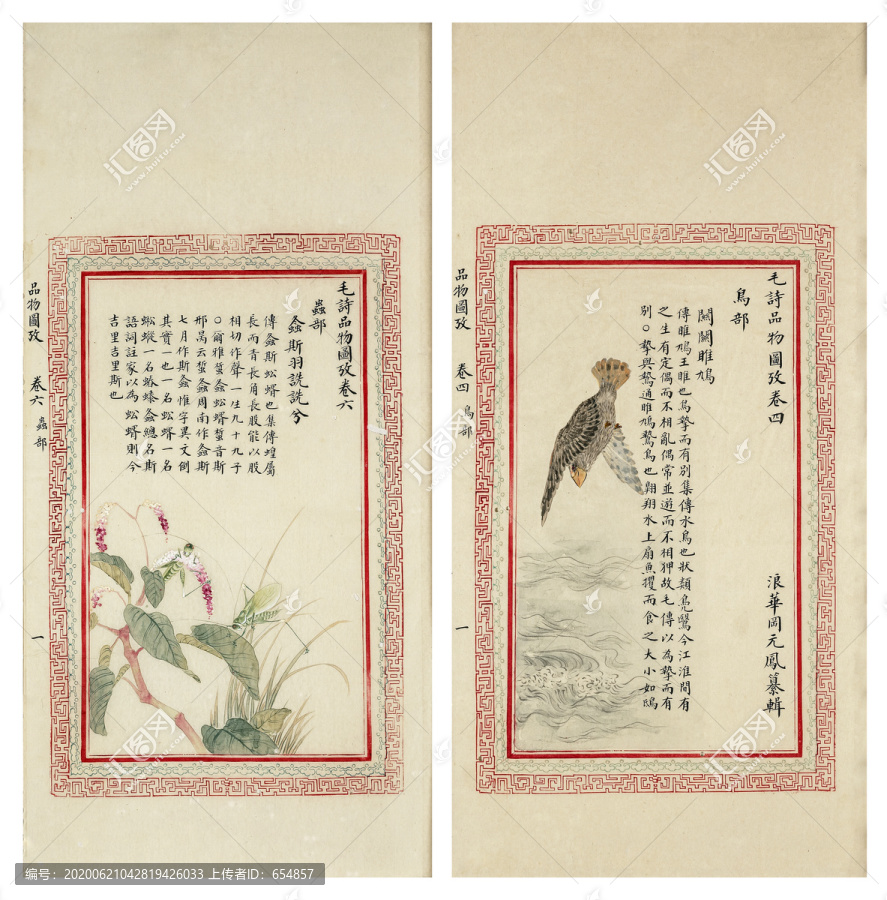 毛詩品物圖攷卷六
蟲部
螽斯羽詵詵兮
傳螽斯蚣蝑也集傳蝗屬
長而青長角長股能以股
相切作聲一生九十九子
○爾雅蜤螽蚣蝑音斯
邢昺云蜤螽周南作螽斯
七月作斯螽惟字異文倒
其實一也一名蚣蝑一名
蚣蝑一名蝽螓螽總名斯
語詞註家以為蚣蝑則今
吉里吉里斯也
品物圖攷
卷六
蟲部
一
毛詩品物圖攷卷四
浪華岡元鳳纂輯
鳥部
關關雎鳩
傳雎鳩王雎也鳥摯而有別集傳水鳥也狀類鳧鷖今江淮間有
之生有定偶而不相亂偶常並遊而不相狎故毛傳以為摯而有
別○摯與鷙通雎鳩鷙鳥也翱翔水上扇魚攫而食之大小如鴟
品物圖攷
卷四
鳥部
一
汇图网
www.huitu.com
编号：20200621042819426033 上传者ID：654857